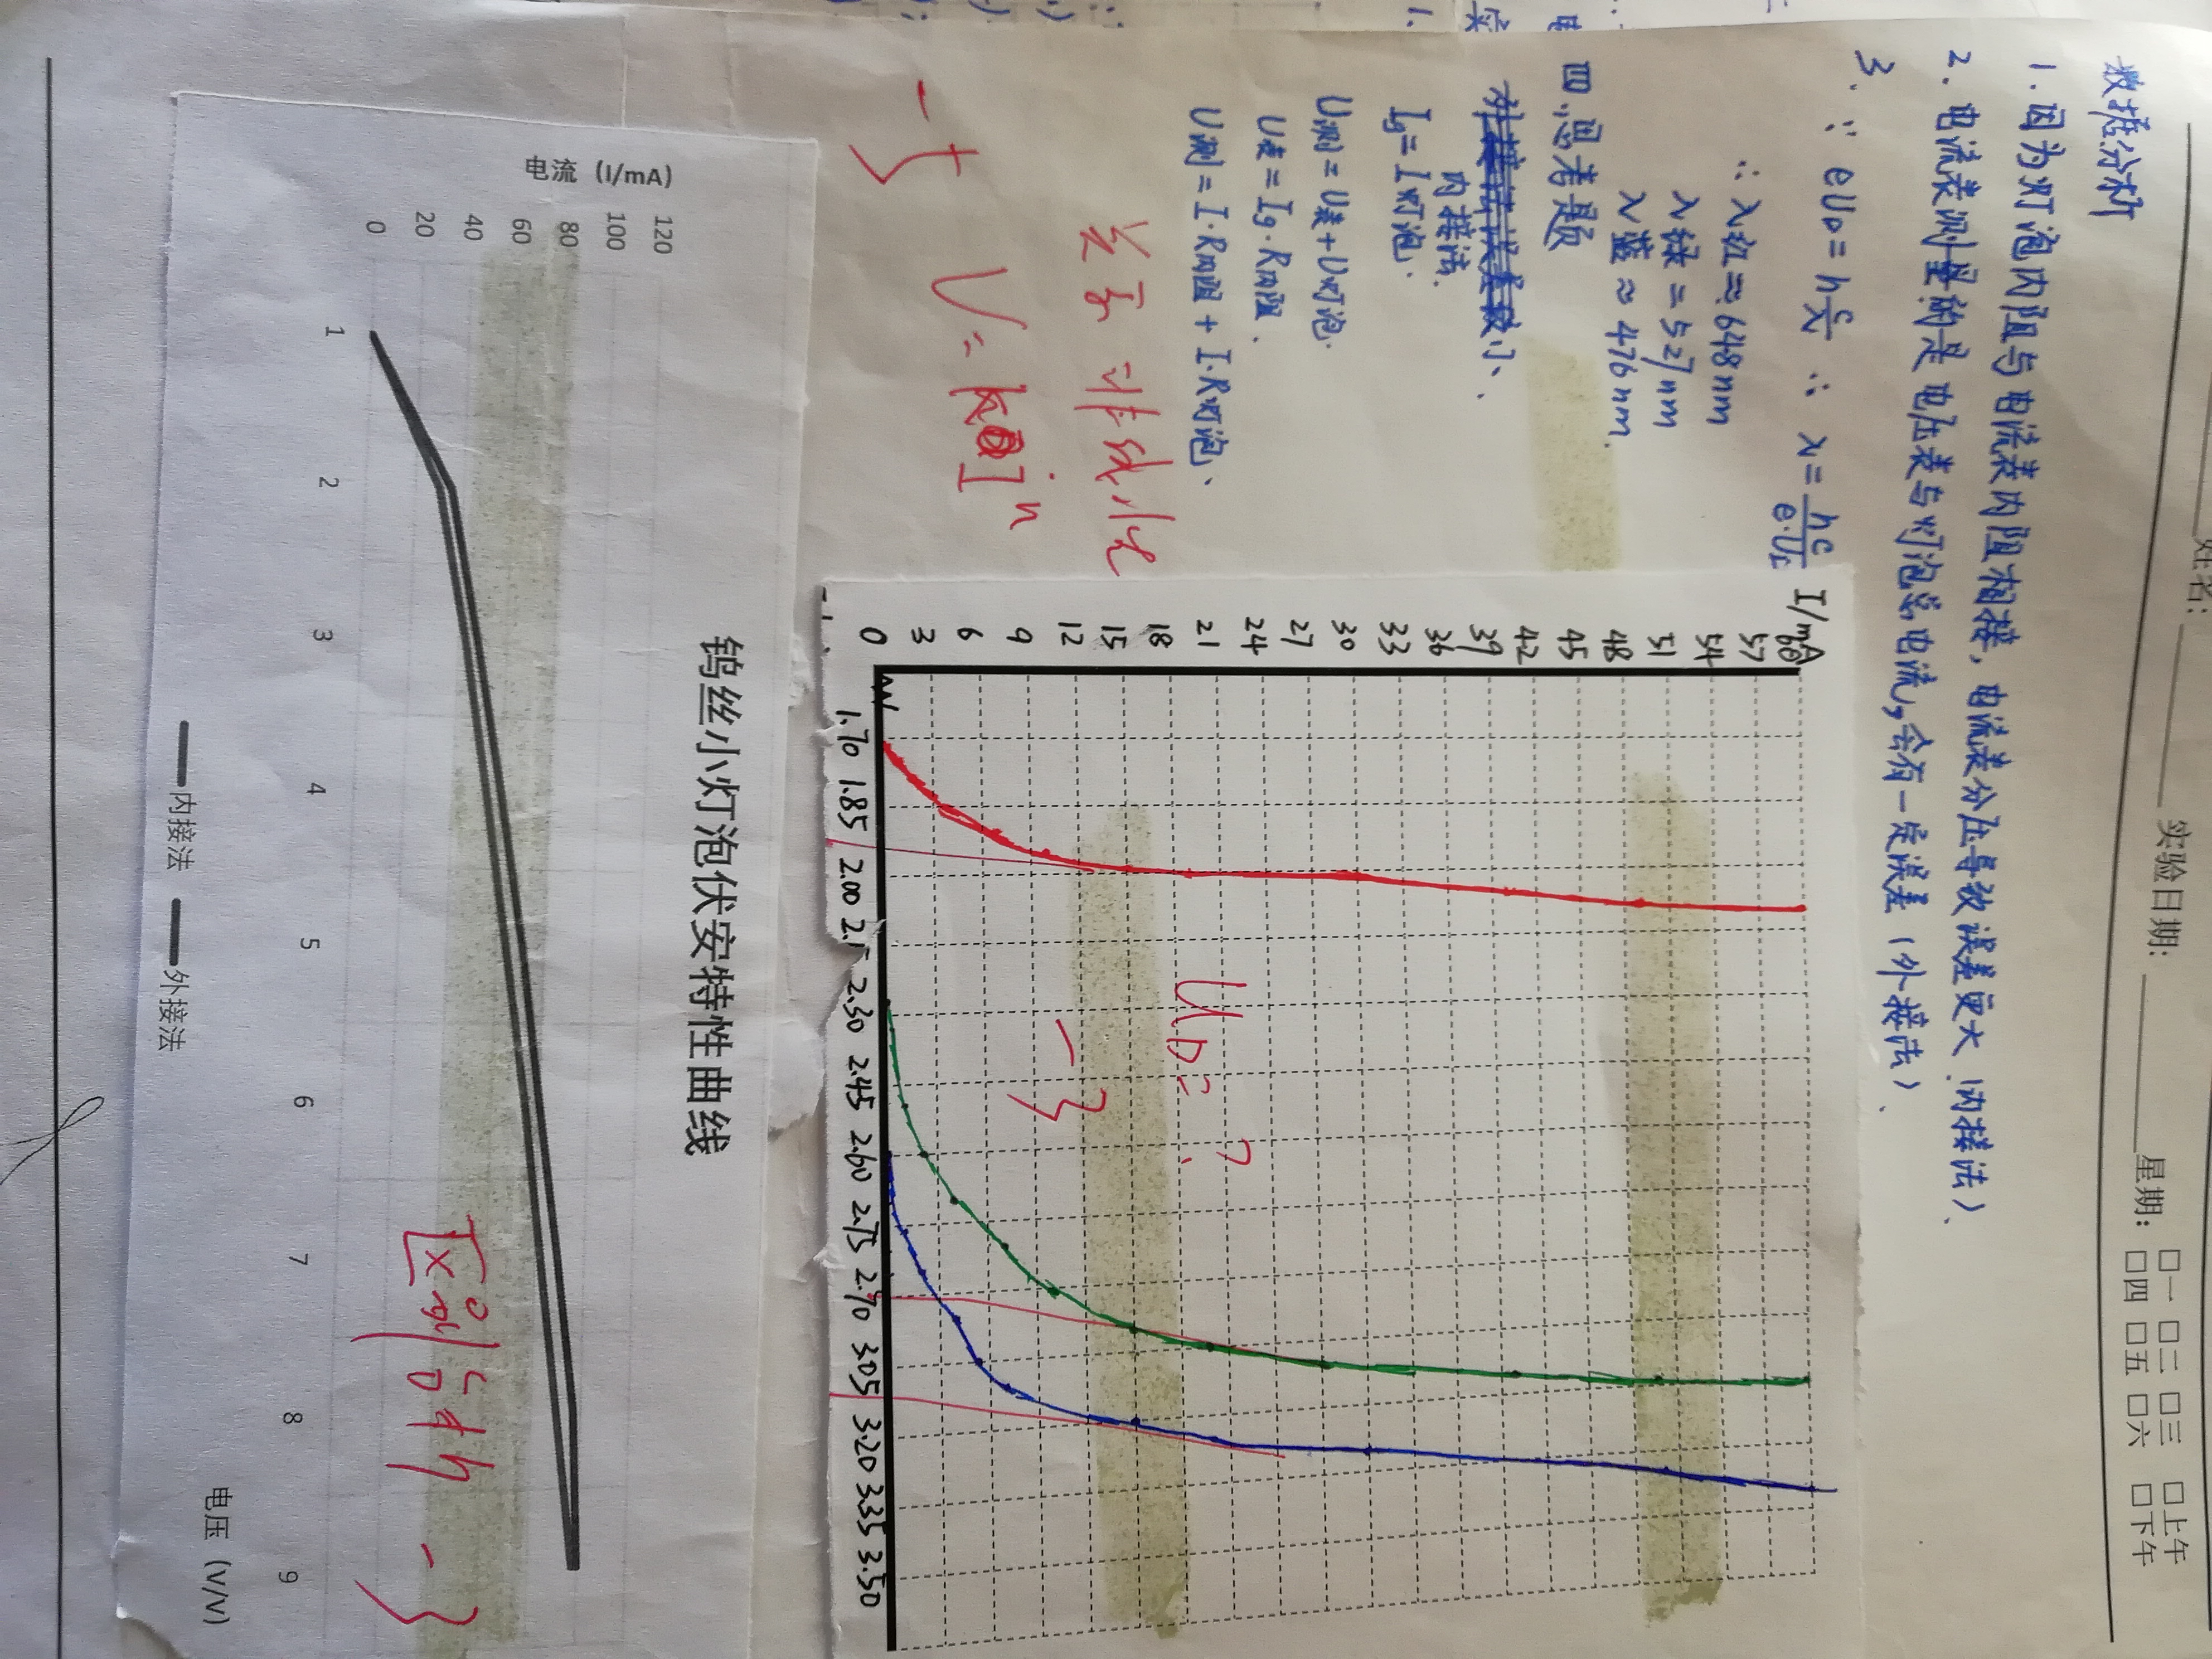 姓名:
实验日期:
星期: □一 □二 □三 □上午
□四 □五 □六 □下午
数据分析
1.因为灯泡内阻与电流表内阻相接,电流表分压导致误差更大(内接法).
2.电流表测量的是电压表与灯泡总电流,会有一定误差(外接法).
3.
∵ eU_D = h c/λ ∴ λ = hc/e·U_D
∴ λ红≈648nm
λ绿=527nm
λ蓝≈476nm.
四.思考题
外接法误差较小.
内接法.
Ig=I灯泡.
U测=U表+U灯泡.
U表=Ig·R内阻.
U测=I·R内阻+I·R灯泡.
关系 非线性
V=KI^n
-5
I/mA
60
57
54
51
48
45
42
39
36
33
30
27
24
21
18
15
12
9
6
3
0
U_D=?
-3
1.70 1.85 2.00 2.30 2.45 2.60 2.75 2.90 3.05 3.20 3.35 3.50
钨丝小灯泡伏安特性曲线
电流 (I/mA)
120
100
80
60
40
20
0
1 2 3 4 5 6 7 8 9
区别分析 -3
电压 (V/V)
内接法 外接法